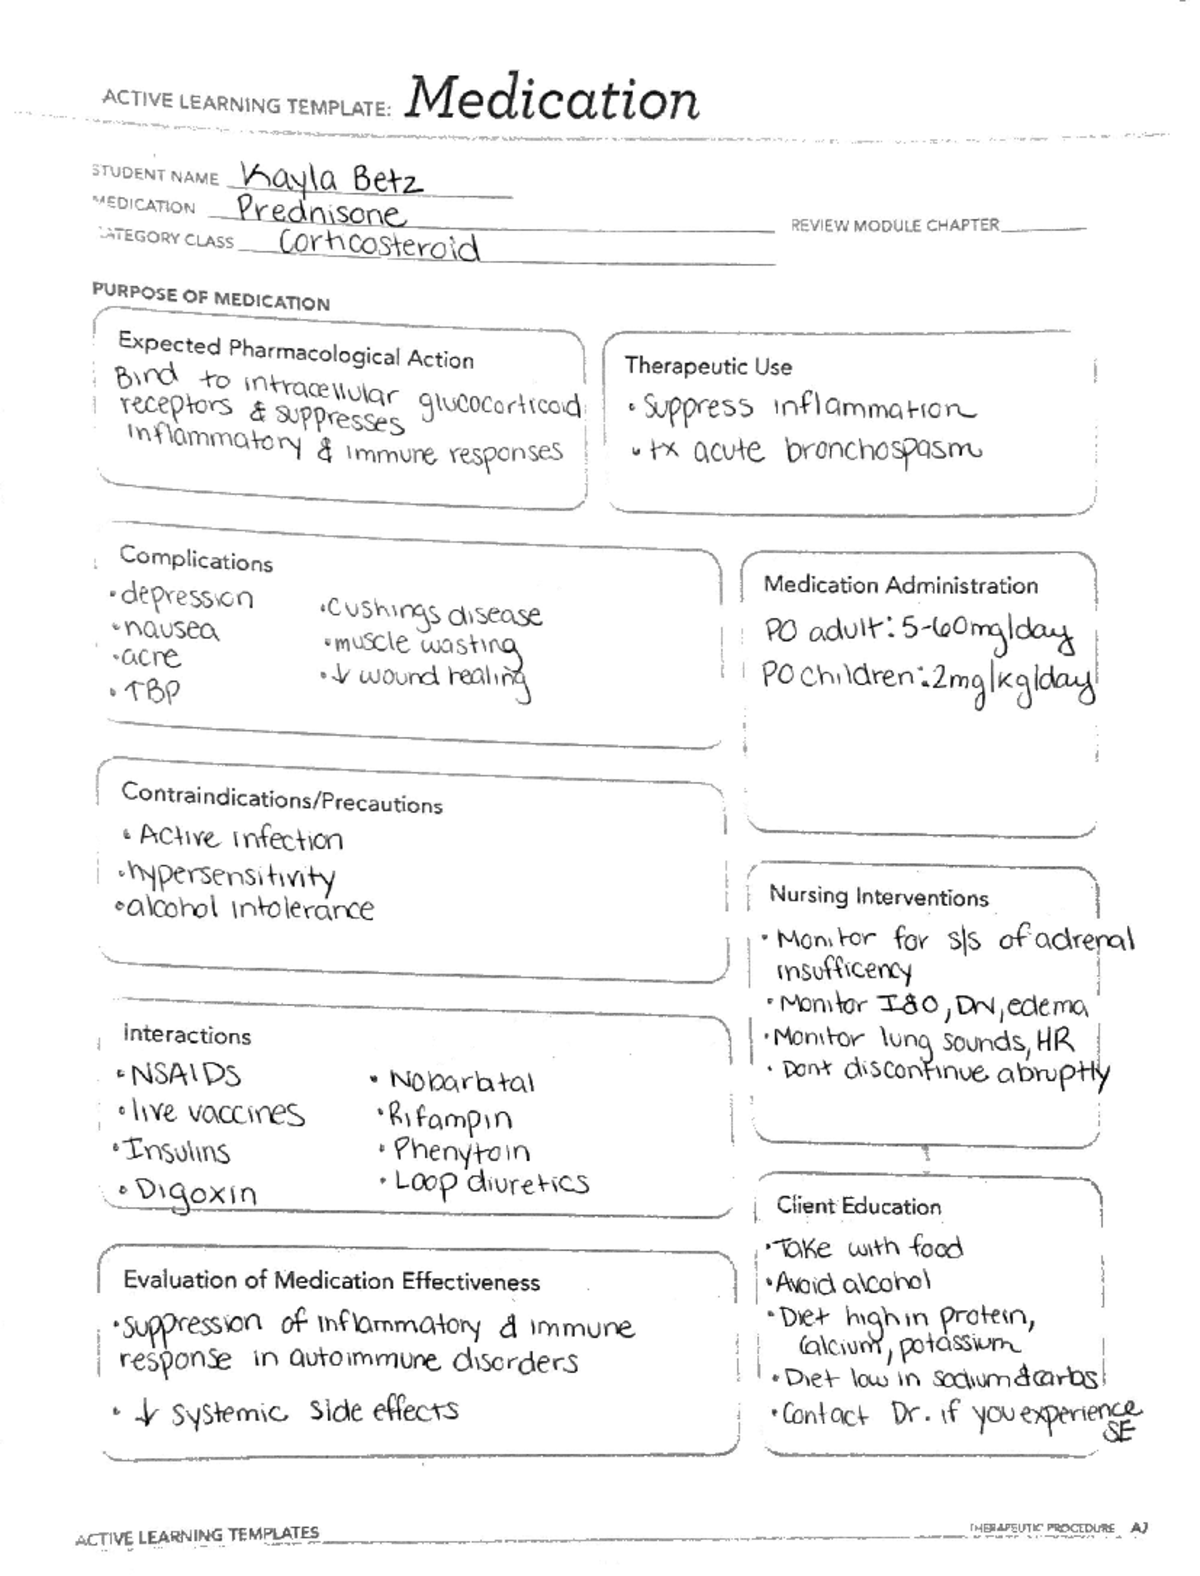 ACTIVE LEARNING TEMPLATE: Medication
STUDENT NAME Kayla Betz
MEDICATION Prednisone
REVIEW MODULE CHAPTER
CATEGORY CLASS Corticosteroid
PURPOSE OF MEDICATION
Expected Pharmacological Action
Bind to intracellular glucocorticoid
receptors & suppresses
inflammatory & immune responses
Therapeutic Use
• Suppress inflammation
• tx acute bronchospasm
Complications
• depression
• nausea
• acne
• ↑BP
• Cushings disease
• muscle wasting
• ↓ wound healing
Medication Administration
PO adult: 5-60mg/day
PO children: 2mg/kg/day
Contraindications/Precautions
• Active infection
• hypersensitivity
• alcohol intolerance
Nursing Interventions
• Monitor for s/s of adrenal
insufficency
• Monitor I&O, DW, edema
• Monitor lung sounds, HR
• Dont discontinue abruptly
Interactions
• NSAIDS
• live vaccines
• Insulins
• Digoxin
• Nobarbital
• Rifampin
• Phenytoin
• Loop diuretics
Client Education
• Take with food
• Avoid alcohol
• Diet high in protein,
calcium, potassium
• Diet low in sodium & carbs
• Contact Dr. if you experience
SE
Evaluation of Medication Effectiveness
• suppression of inflammatory & immune
response in autoimmune disorders
• ↓ systemic side effects
ACTIVE LEARNING TEMPLATES
THERAPEUTIC PROCEDURE A7